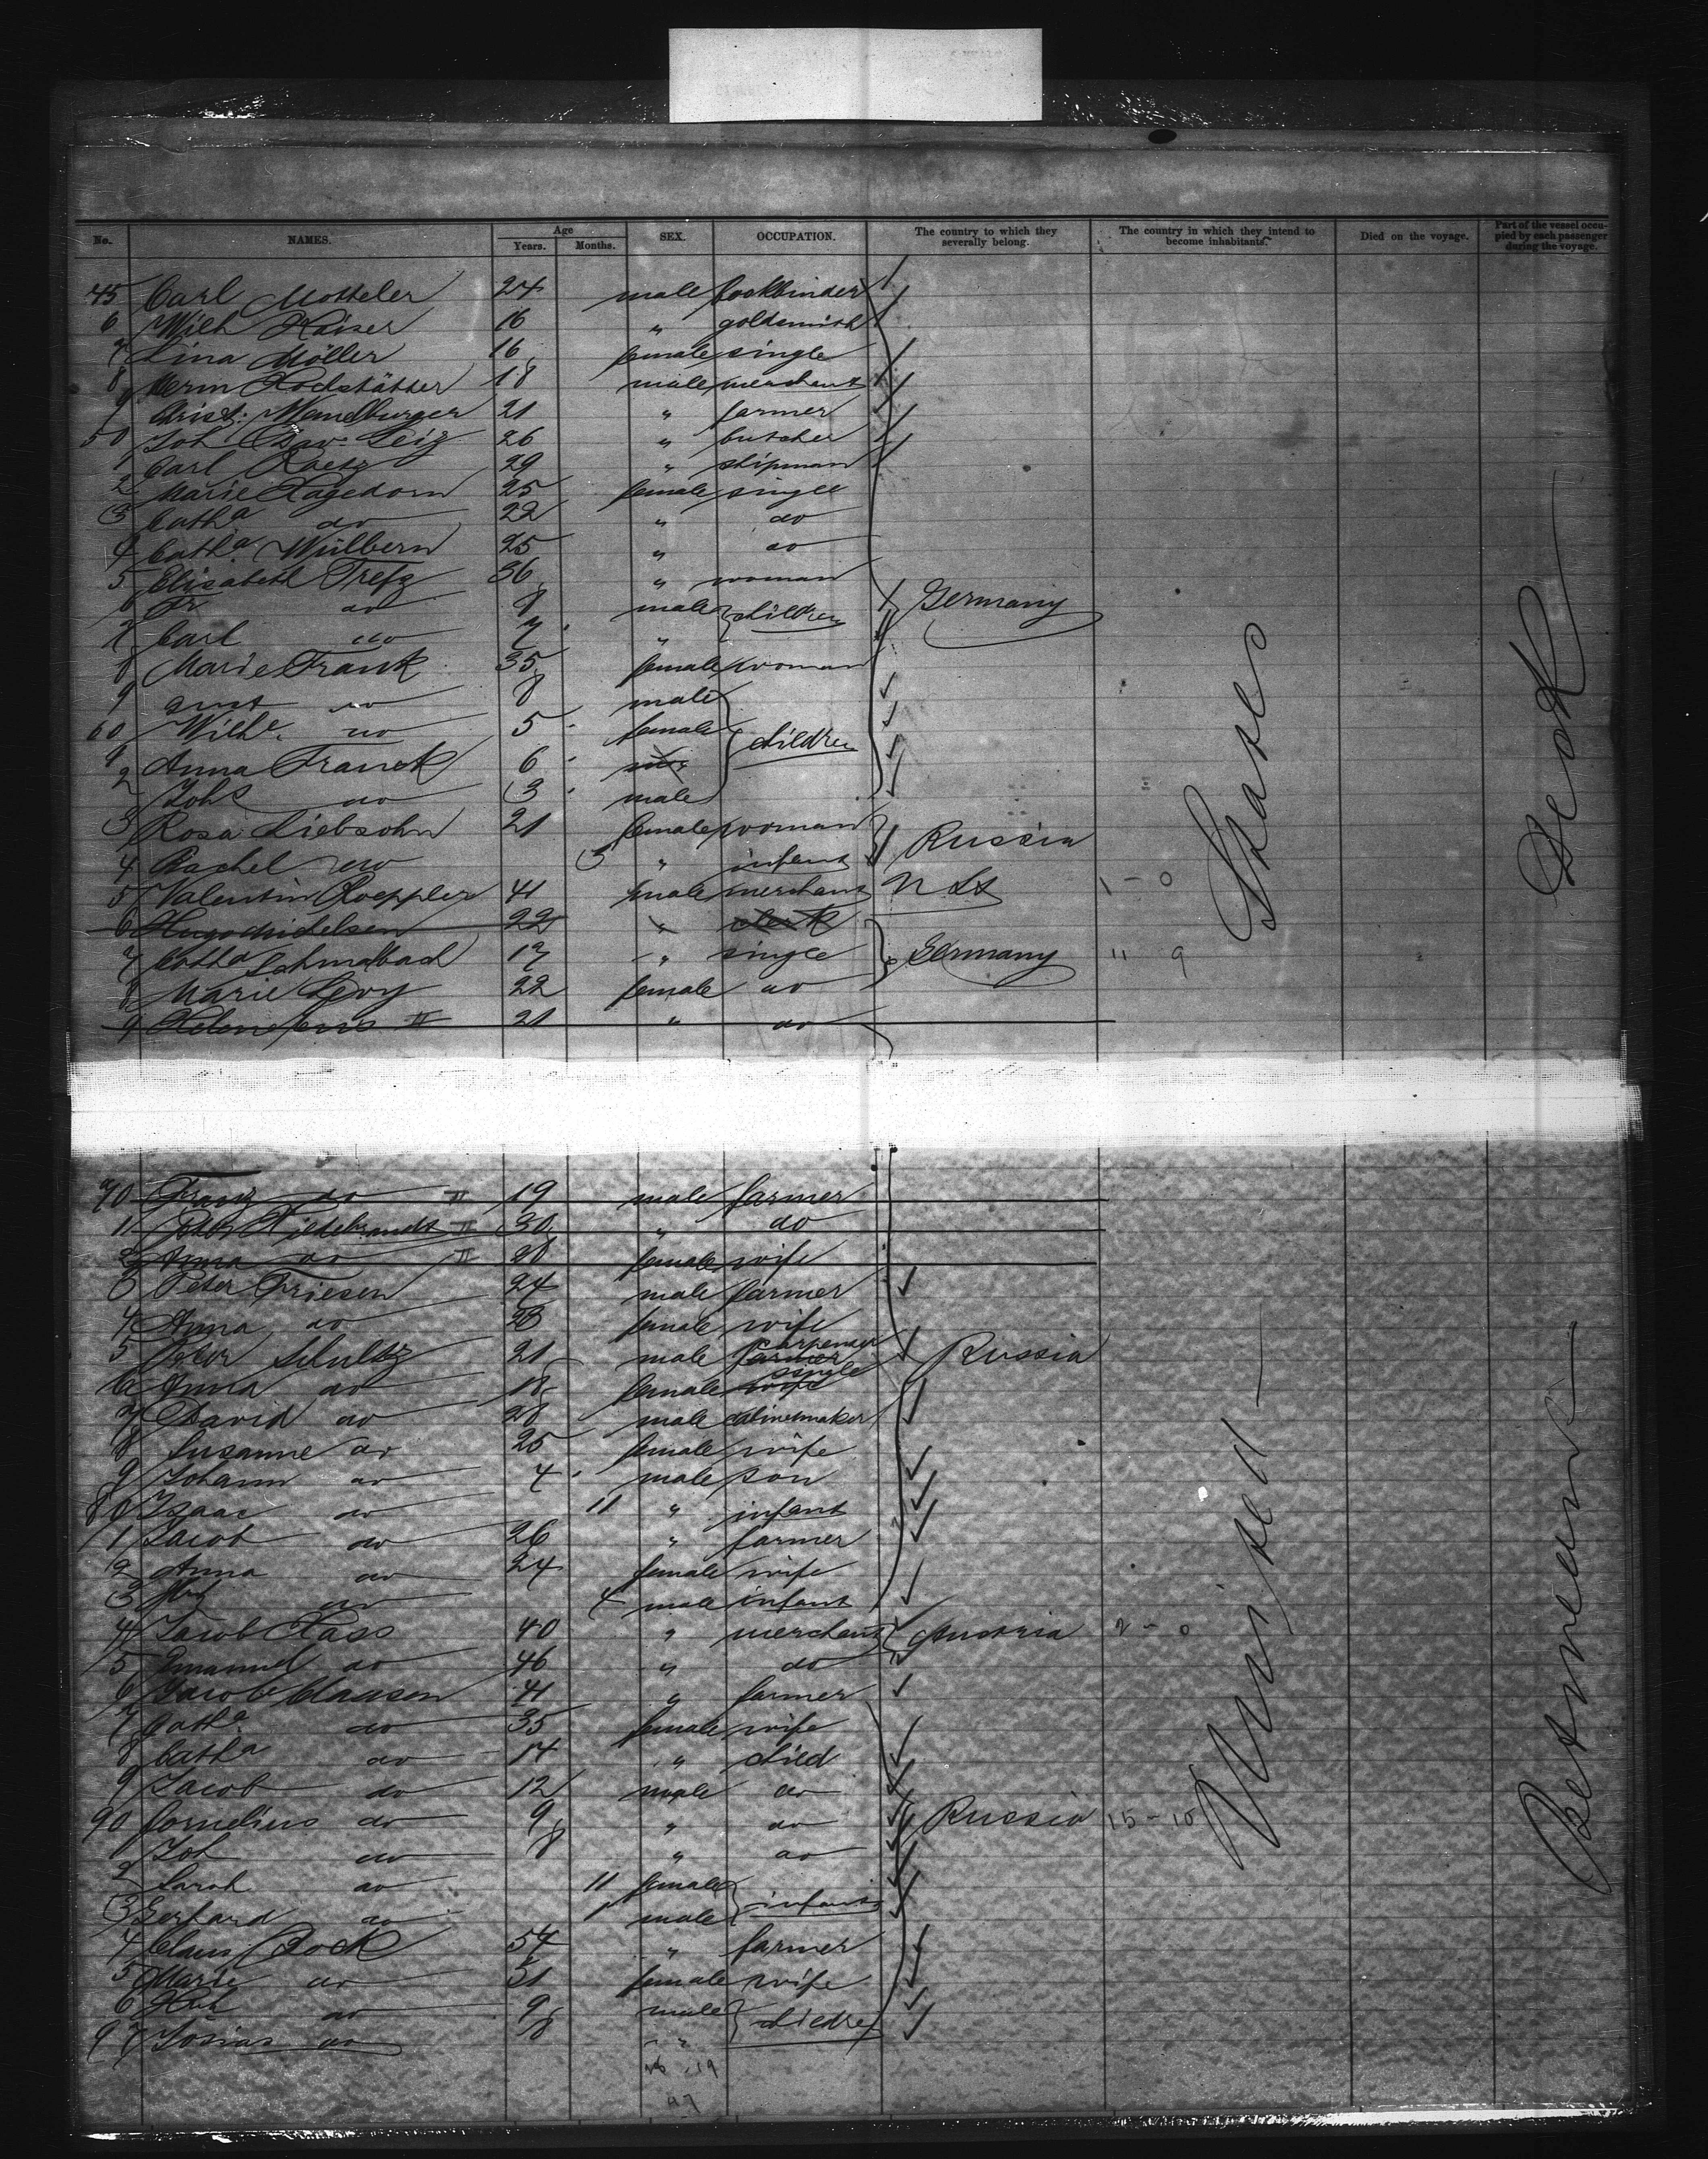 No. NAMES. Age Years. Months. SEX. OCCUPATION. The country to which they severally belong. The country in which they intend to become inhabitants. Died on the voyage. Part of the vessel occupied by each passenger during the voyage.
45 Carl Motteler 24 male bookbinder
6 Wilh Kaiser 16 " goldsmith
7 Lina Möller 16 female single
8 Herm Hochstätter 18 male merchant
9 Christ. 21 " farmer
50 Joh Dav. 26 " butcher
1 Carl 29 " shipman
2 Marie Hagedorn 25 female single
3 Catha do 22 " do
4 Catha Wülbern 25 " do
5 Elisabeth Trefz 36 " woman
6 Fr do 8 male children Germany
7 Carl do 7 "
8 Marie Frank 35 female woman
9 do 8 male
60 Wilhe do 5 female children
1 Anna Franck 6
2 Johs do 3 male
3 Rosa Liebsohn 21 female woman Russia
4 Rachel do 3 " infant
5 Valentin Koeppler 41 male merchant 1 - 0
6 Hugo Michelsen 22 " clerk
7 Catha Schmalbach 17 " single Germany 11 9
8 Marie Levy 22 female do
9 II 21 " do
70 Franz do II 19 male farmer
1 Peter Hildebrandt II 30 " do
2 Anna do II 28 female wife
3 Peter Friesen 24 male farmer
4 Anna do 23 female wife
5 Peter Schultz 21 male farmer carpenter Russia
6 Anna do 18 female wife single
7 David do 28 male cabinetmaker
8 Susanne do 25 female wife
9 Johann do 4 male son
80 Isaac do 11 " infant
1 Jacob do 26 " farmer
2 Anna do 24 female wife
3 do 4 male infant
4 Jacob Kass 40 " merchant Austria 2 - 0
5 Emanuel do 46 " do
6 Jacob Claasen 41 " farmer
7 Catha do 35 female wife
8 Catha do 14 " child
9 Jacob do 12 male do
90 Cornelius do 9 " do Russia 15 - 10
1 Joh do 8 " do
2 Sarah do 11 female infants
3 Gerhard do 1 male
4 Claus Dock 54 " farmer
5 Marie do 31 female wife
6 do 9 male children
97 Tobias do 8 "
97
United States
Between Deck